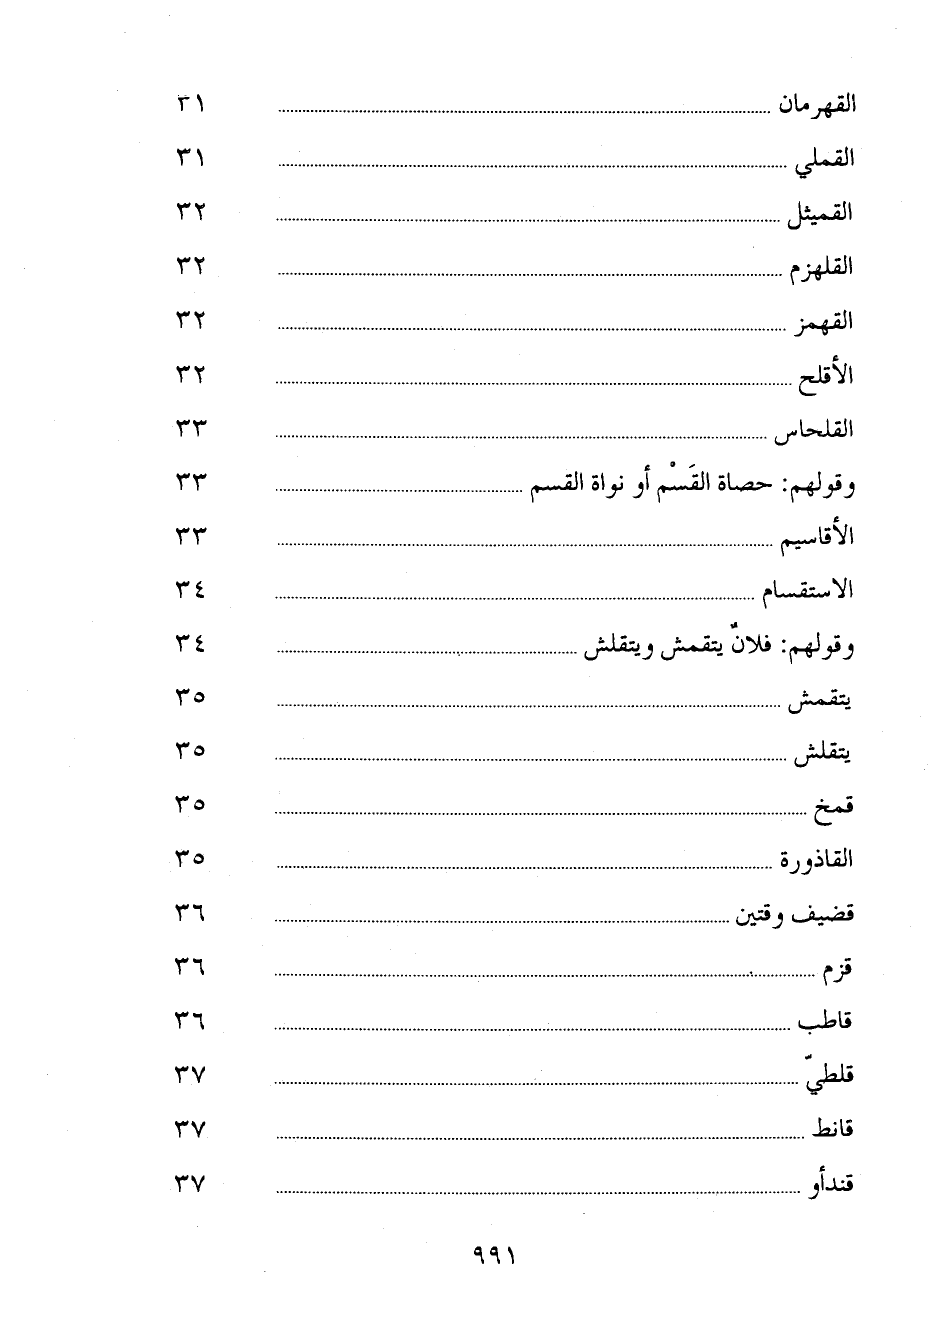 القهرمان ........ ٣١
القملي ........ ٣١
القميثل ........ ٣٢
القلهزم ........ ٣٢
القهمز ........ ٣٢
الأقلح ........ ٣٢
القلحاس ........ ٣٣
وقولهم: حصاة القَسْم أو نواة القسم ........ ٣٣
الأقاسيم ........ ٣٣
الاستقسام ........ ٣٤
وقولهم: فلانٌ يتقمش ويتقلش ........ ٣٤
يتقمش ........ ٣٥
يتقلش ........ ٣٥
قمخ ........ ٣٥
القاذورة ........ ٣٥
قضيف وقتين ........ ٣٦
قزم ........ ٣٦
قاطب ........ ٣٦
قلطيّ ........ ٣٧
قانط ........ ٣٧
قندأو ........ ٣٧
٩٩١